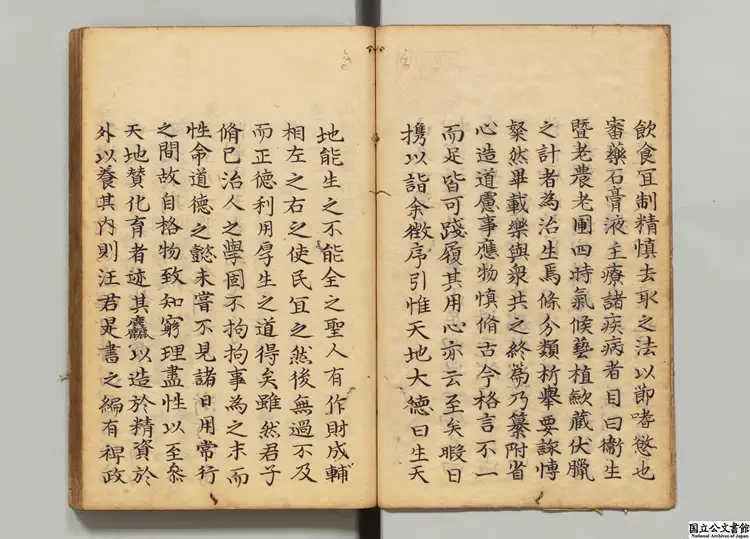 飲食冝制精慎去取之法以節嗜慾也
審藥石膏液主療諸疾病者目曰衞生
曁老農老圃四時氣候藝植斂藏伏臘
之計者為治生焉條分類析舉要詠愽
粲然畢載樂與衆共之終為乃纂附省
心造道慮事應物慎脩古今格言不一
而足皆可踐履其用心亦云至矣暇日
携以詣余徴序引惟天地大德曰生天
地能生之不能全之聖人有作財成輔
相左之右之使民冝之然後無過不及
而正德利用厚生之道得矣雖然君子
脩已治人之學固不拘拘事為之末而
性命道德之懿未嘗不見諸日用常行
之間故自格物致知窮理盡性以至叅
天地賛化育者迹其麤以造於精資於
外以養其内則汪君是書之編有裨政
国立公文書館
National Archives of Japan